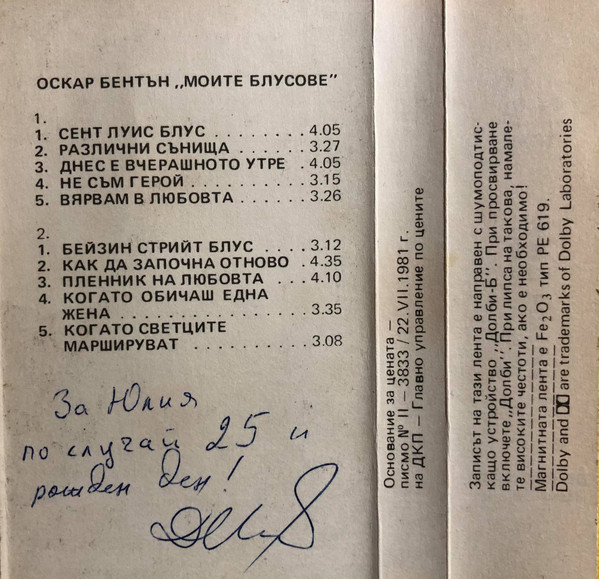 ОСКАР БЕНТЪН „МОИТЕ БЛУСОВЕ"
1.
1. СЕНТ ЛУИС БЛУС . . . . . . . . 4.05
2. РАЗЛИЧНИ СЪНИЩА . . . . . . 3.27
3. ДНЕС Е ВЧЕРАШНОТО УТРЕ . 4.05
4. НЕ СЪМ ГЕРОЙ . . . . . . . . . . 3.15
5. ВЯРВАМ В ЛЮБОВТА . . . . . . 3.26
2.
1. БЕЙЗИН СТРИЙТ БЛУС . . . . 3.12
2. КАК ДА ЗАПОЧНА ОТНОВО . 4.35
3. ПЛЕННИК НА ЛЮБОВТА . . . . 4.10
4. КОГАТО ОБИЧАШ ЕДНА
ЖЕНА . . . . . . . . . . . . . . . . 3.35
5. КОГАТО СВЕТЦИТЕ
МАРШИРУВАТ . . . . . . . . . . . 3.08
За Юлия
по случай 25 и
рожден ден!
Основание за цената –
писмо № II – 3833 / 22.VII.1981 г.
на ДКП – Главно управление по цените
Записът на тази лента е направен с шумоподтис-
кащо устройство „Долби-Б". При просвирване
включете „Долби". При липса на такова, намале-
те високите честоти, ако е необходимо!
Магнитната лента е Fe2O3 тип PE 619.
Dolby and are trademarks of Dolby Laboratories